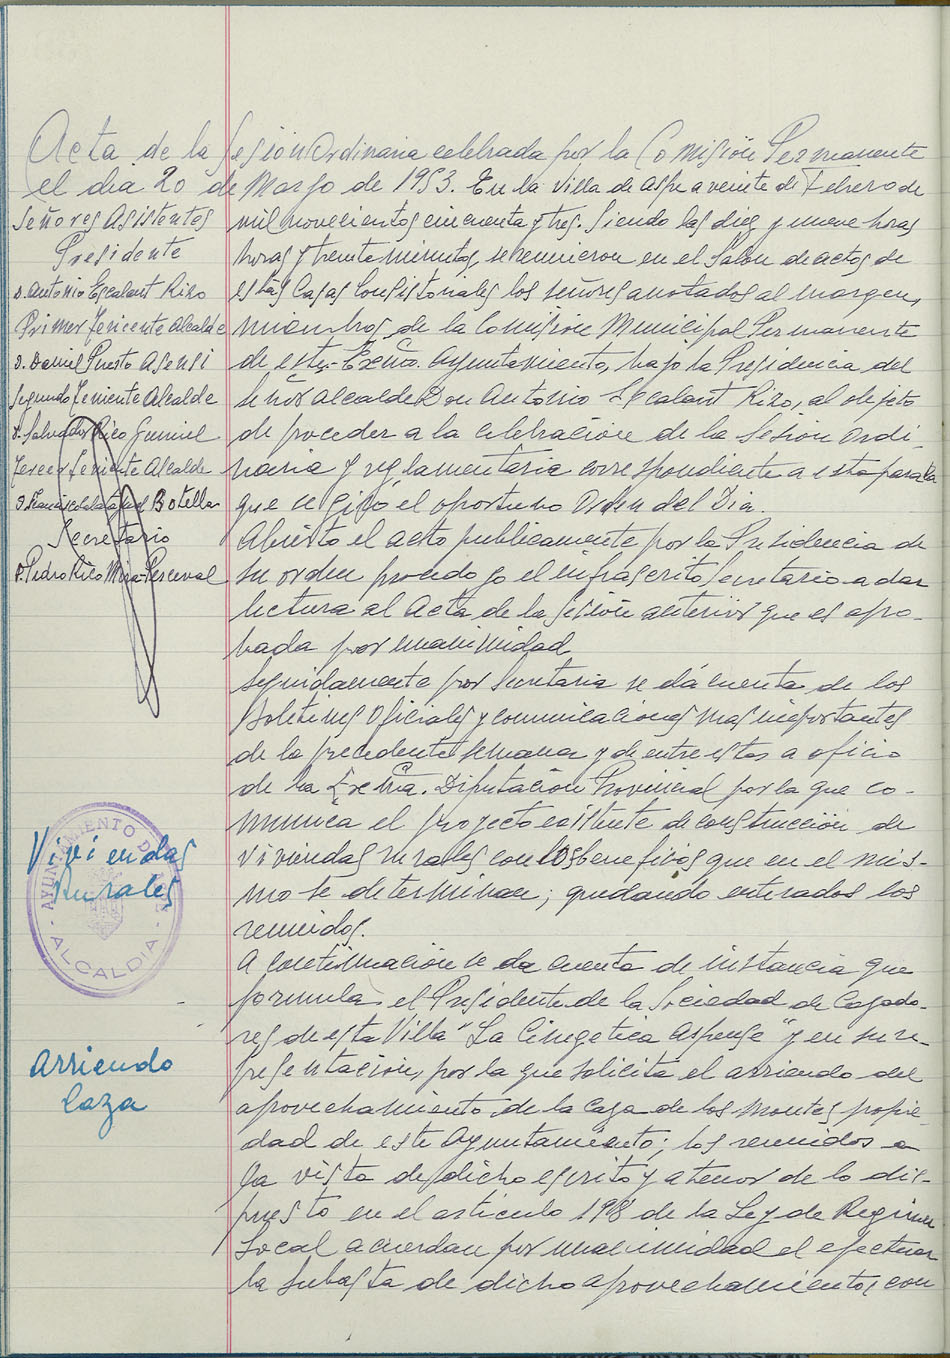 Acta de la Sesión Ordinaria celebrada por la Comisión Permanente
el dia 20 de Marzo de 1953. En la villa de Aspe a veinte de Febrero de
Señores Asistentes
Presidente
D. Antonio Escalant Rizo
Primer Teniente Alcalde
D. Daniel Puerto Asensi
Segundo Teniente Alcalde
D. Salvador Rico Gumiel
Tercer Teniente Alcalde
D. Francisco Calatayud Botella
Secretario
D. Pedro Rico Mira-Perceval
mil novecientos cincuenta y tres. Siendo las diez y nueve horas
horas y treinta minutos, se reunieron en el Salon de actos de
estas Casas Consistoriales los señores anotados al margen,
miembros de la Comisión Municipal Permanente
de este Excmo. Ayuntamiento, bajo la Presidencia del
Señor Alcalde Don Antonio Escalant Rizo, al objeto
de proceder a la celebración de la Sesión Ordi-
naria y reglamentaria correspondiente a esta para la
que se giró el oportuno Orden del Dia.
Abierto el acto publicamente por la Presidencia de
su orden procedo yo el infrascrito Secretario a dar
lectura al Acta de la sesión anterior que es apro-
bada por unanimidad
Seguidamente por Secretaria se dá cuenta de los
Boletines Oficiales y comunicaciones mas importantes
de la precedente semana y de entre estas a oficio
de la Excma. Diputación Provincial por la que co-
munica el proyecto existente de construcción de
viviendas rurales con los beneficios que en el mis-
mo se determinan; quedando enterados los
reunidos.
Viviendas
Rurales
AYUNTAMIENTO DE ASPE
- ALCALDIA -
A continuación se da cuenta de instancia que
formula el Presidente de la Sociedad de Cazado-
res de esta Villa "La Cinegetica Aspense" y en su re-
presentación, por la que solicita el arriendo del
aprovechamiento de la Caza de los montes propie-
dad de este Ayuntamiento; los reunidos a
la vista de dicho escrito y a tenor de lo dis-
puesto en el articulo 198 de la Ley de Regimen
Local acuerdan por unanimidad el efectuar
la subasta de dicho aprovechamiento, con
Arriendo
Caza